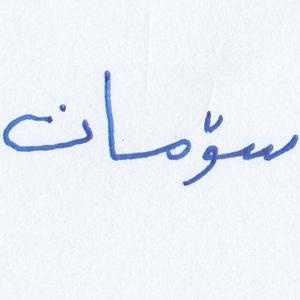 سۆمان